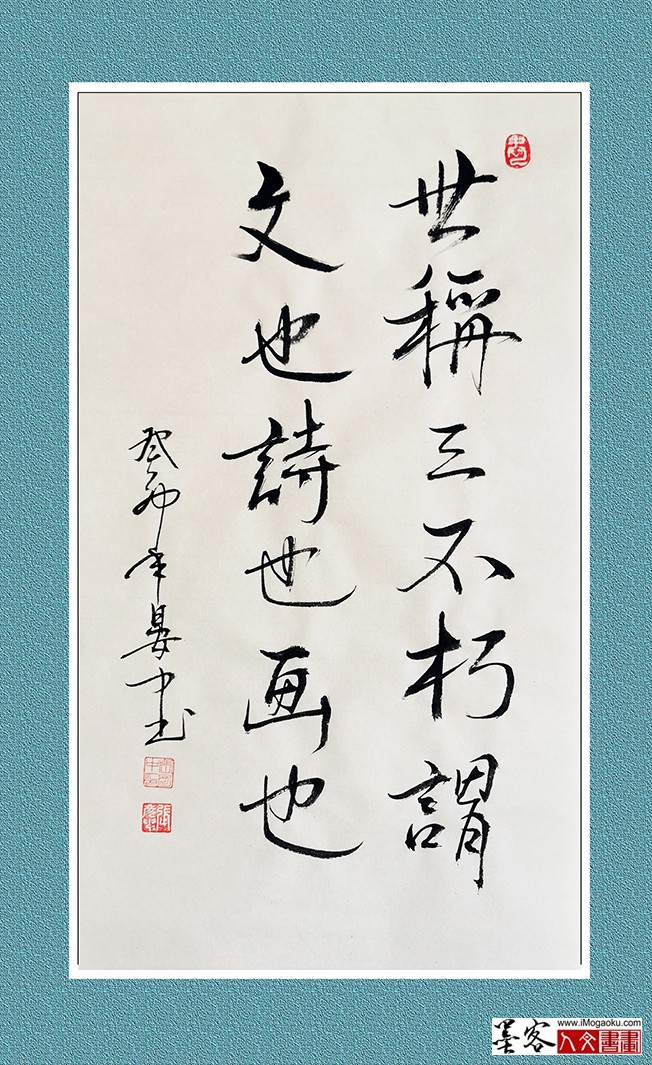 世稱三不朽謂
文也詩也画也
癸卯年晏中書
墨客
www.iMogaoku.com
人文書畫